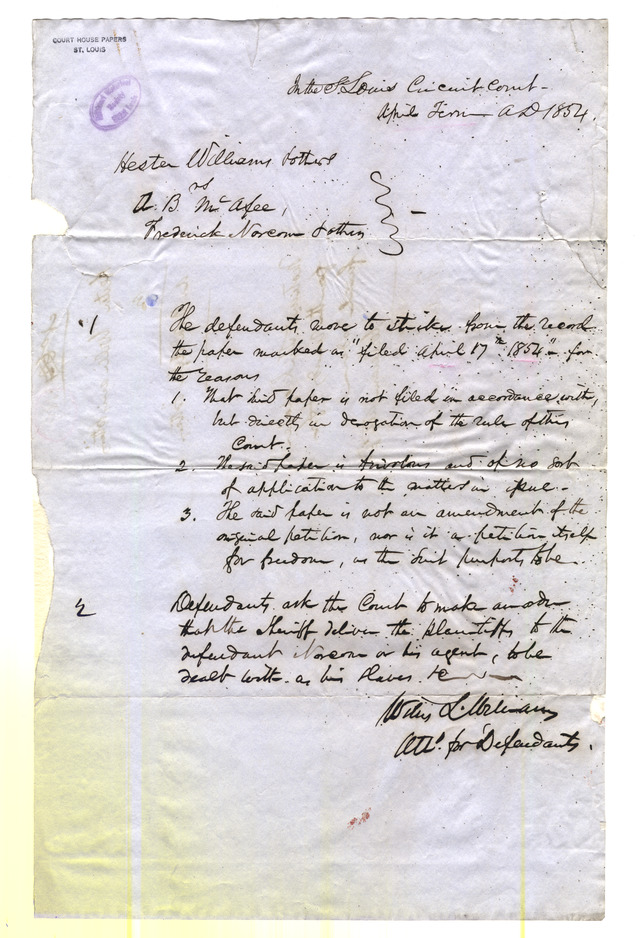 COURT HOUSE PAPERS
ST. LOUIS
In the St Louis Circuit Court-
April Term A D 1854.
Hester Williams & others
vs
A. B. McAfee,
Frederick Norcom & others
1
The defendants move to strike from the record
the paper marked as "filed April 17th 1854" for
the reasons
1. That said paper is not filed in accordance with,
but directly in derogation of the rule of this
Court.
2. The said paper is frivolous and of no sort
of application to the matters in issue.
3. The said paper is not an amendment of the
original petition, nor is it a petition itself
for freedom, as the suit purports to be.
2
Defendants ask the Court to make an order
that the Sheriff deliver the plaintiffs to the
defendant Norcom or his agent, to be
dealt with as his slaves &c
Willis L. Williams
Atty. for Defendants.